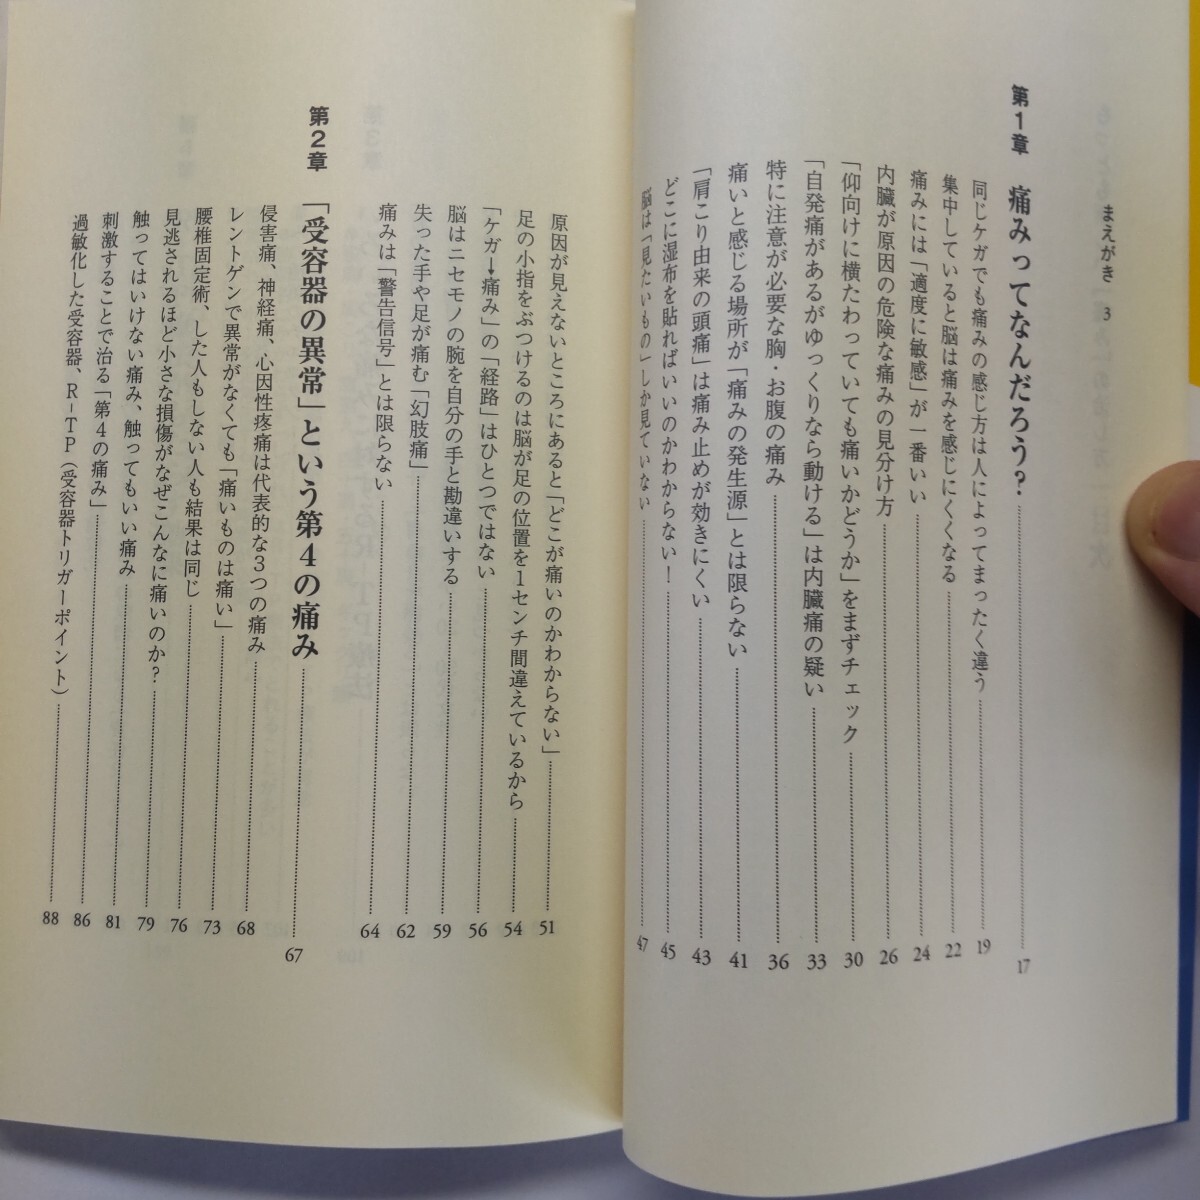 まえがき 3
第1章 痛みってなんだろう? 17
同じケガでも痛みの感じ方は人によってまったく違う 19
集中していると脳は痛みを感じにくくなる 22
痛みには「適度に敏感」が一番いい 24
内臓が原因の危険な痛みの見分け方 26
「仰向けに横たわっていても痛いかどうか」をまずチェック 30
「自発痛があるがゆっくりなら動ける」は内臓痛の疑い 33
特に注意が必要な胸・お腹の痛み 36
痛いと感じる場所が「痛みの発生源」とは限らない 41
「肩こり由来の頭痛」は痛み止めが効きにくい 43
どこに湿布を貼ればいいのかわからない! 45
脳は「見たいもの」しか見ていない 47
原因が見えないところにあると「どこが痛いのかわからない」 51
足の小指をぶつけるのは脳が足の位置を1センチ間違えているから 54
「ケガ→痛み」の「経路」はひとつではない 56
脳はニセモノの腕を自分の手と勘違いする 59
失った手や足が痛む「幻肢痛」 62
痛みは「警告信号」とは限らない 64
第2章 「受容器の異常」という第4の痛み 67
侵害痛、神経痛、心因性疼痛は代表的な3つの痛み 68
レントゲンで異常がなくても「痛いものは痛い」 73
腰椎固定術、した人もしない人も結果は同じ 76
見逃されるほど小さな損傷がなぜこんなに痛いのか? 79
触ってはいけない痛み、触ってもいい痛み 81
刺激することで治る「第4の痛み」 86
過敏化した受容器、R-TP(受容器トリガーポイント) 88